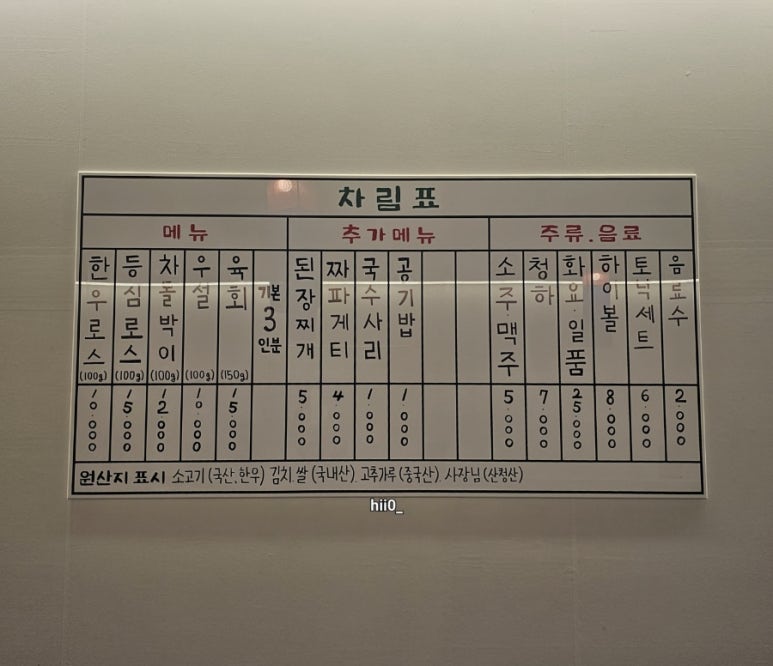 차림표
메뉴
한우로스 (100g) 10.000
등심로스 (100g) 15.000
차돌박이 (100g) 12.000
우설 (100g) 10.000
육회 (150g) 15.000
기본 3인분
추가메뉴
된장찌개 5.000
짜파게티 4.000
국수사리 1.000
공기밥 1.000
주류.음료
소주.맥주 5.000
청하 7.000
화요.일품 25.000
하이볼 8.000
토닉세트 6.000
음료수 2.000
원산지 표시 소고기(국산.한우) 김치.쌀(국내산). 고추가루(중국산). 사장님(산청산)
hii0_